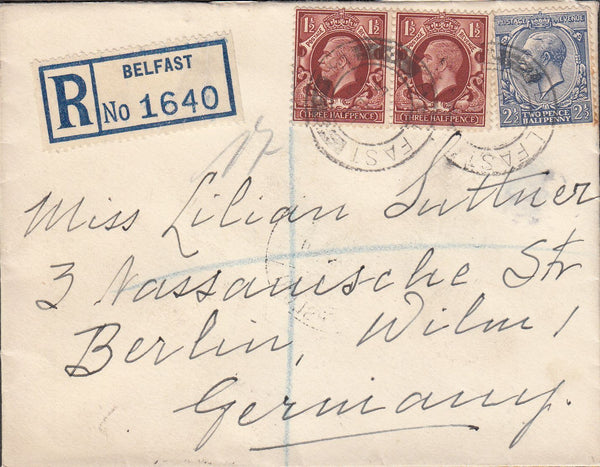 R BELFAST
No 1640
1½ POSTAGE REVENUE 1½
THREE HALFPENCE
1½ POSTAGE REVENUE 1½
THREE HALFPENCE
POSTAGE REVENUE
2½ TWO PENCE HALFPENNY 2½
FAST
LFAST
Miss Lilian Suttner
3 Nassauische Str
Berlin, Wilm 1
Germany.